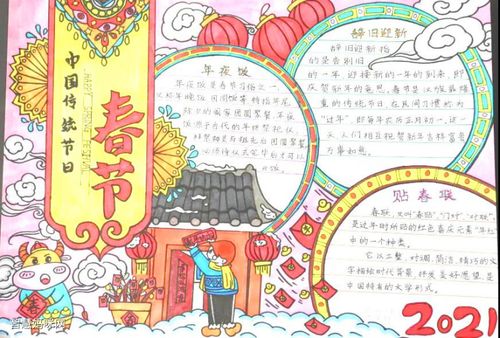 中国传统节日
HAPPY SPRING FESTIVAL
春节
年夜饭
年夜饭是春节习俗之一,
又称年晚饭、团圆饭等,特指年尾
除夕的阖家团圆聚餐。年夜
饭源于古代的年终祭祀仪,
拜祭神灵与祖先后团圆聚餐。
饭。
辞旧迎新
辞旧迎新指
的是告别旧
的一年,迎接新的一年的到来,即
庆贺新年的意思。春节是汉族最隆
重的传统节日,在民间习惯称为
“过年”,即每年农历正月初一,这一
天,人们相互祝贺新年吉祥富贵
万事如意。
贴春联
春联,又叫“春贴”、“门对”、“对联”,
是过年时所贴的红色喜庆元素“年红”
中的一个种类。
它以工整、对偶、简洁、精巧的文
字描绘时代背景,抒发美好愿望,是
中国特有的文学形式。
春
2021